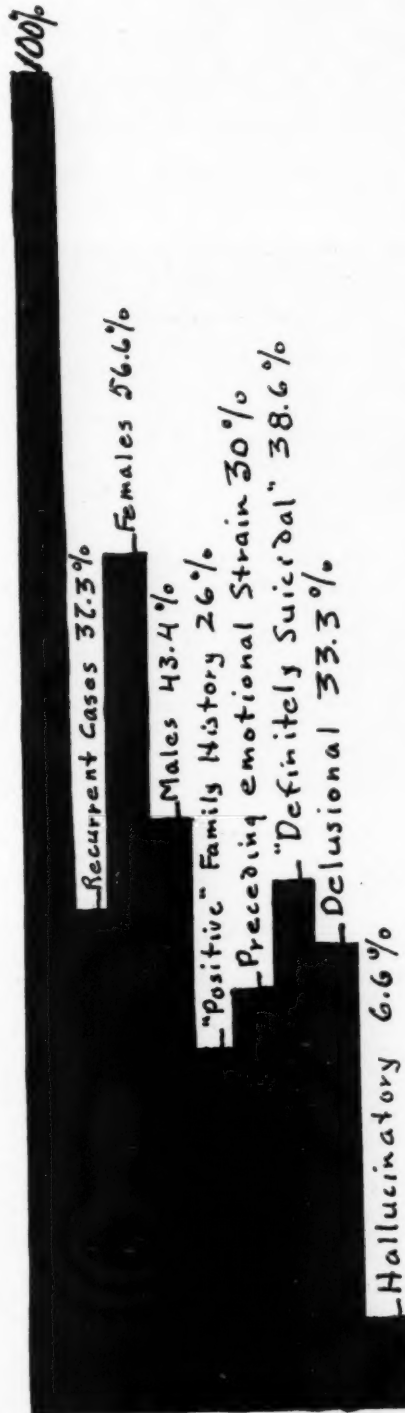 100%
Recurrent Cases 37.3%
Females 56.6%
Males 43.4%
"Positive" Family History 26%
Preceding emotional Strain 30%
"Definitely Suicidal" 38.6%
Delusional 33.3%
Hallucinatory 6.6%